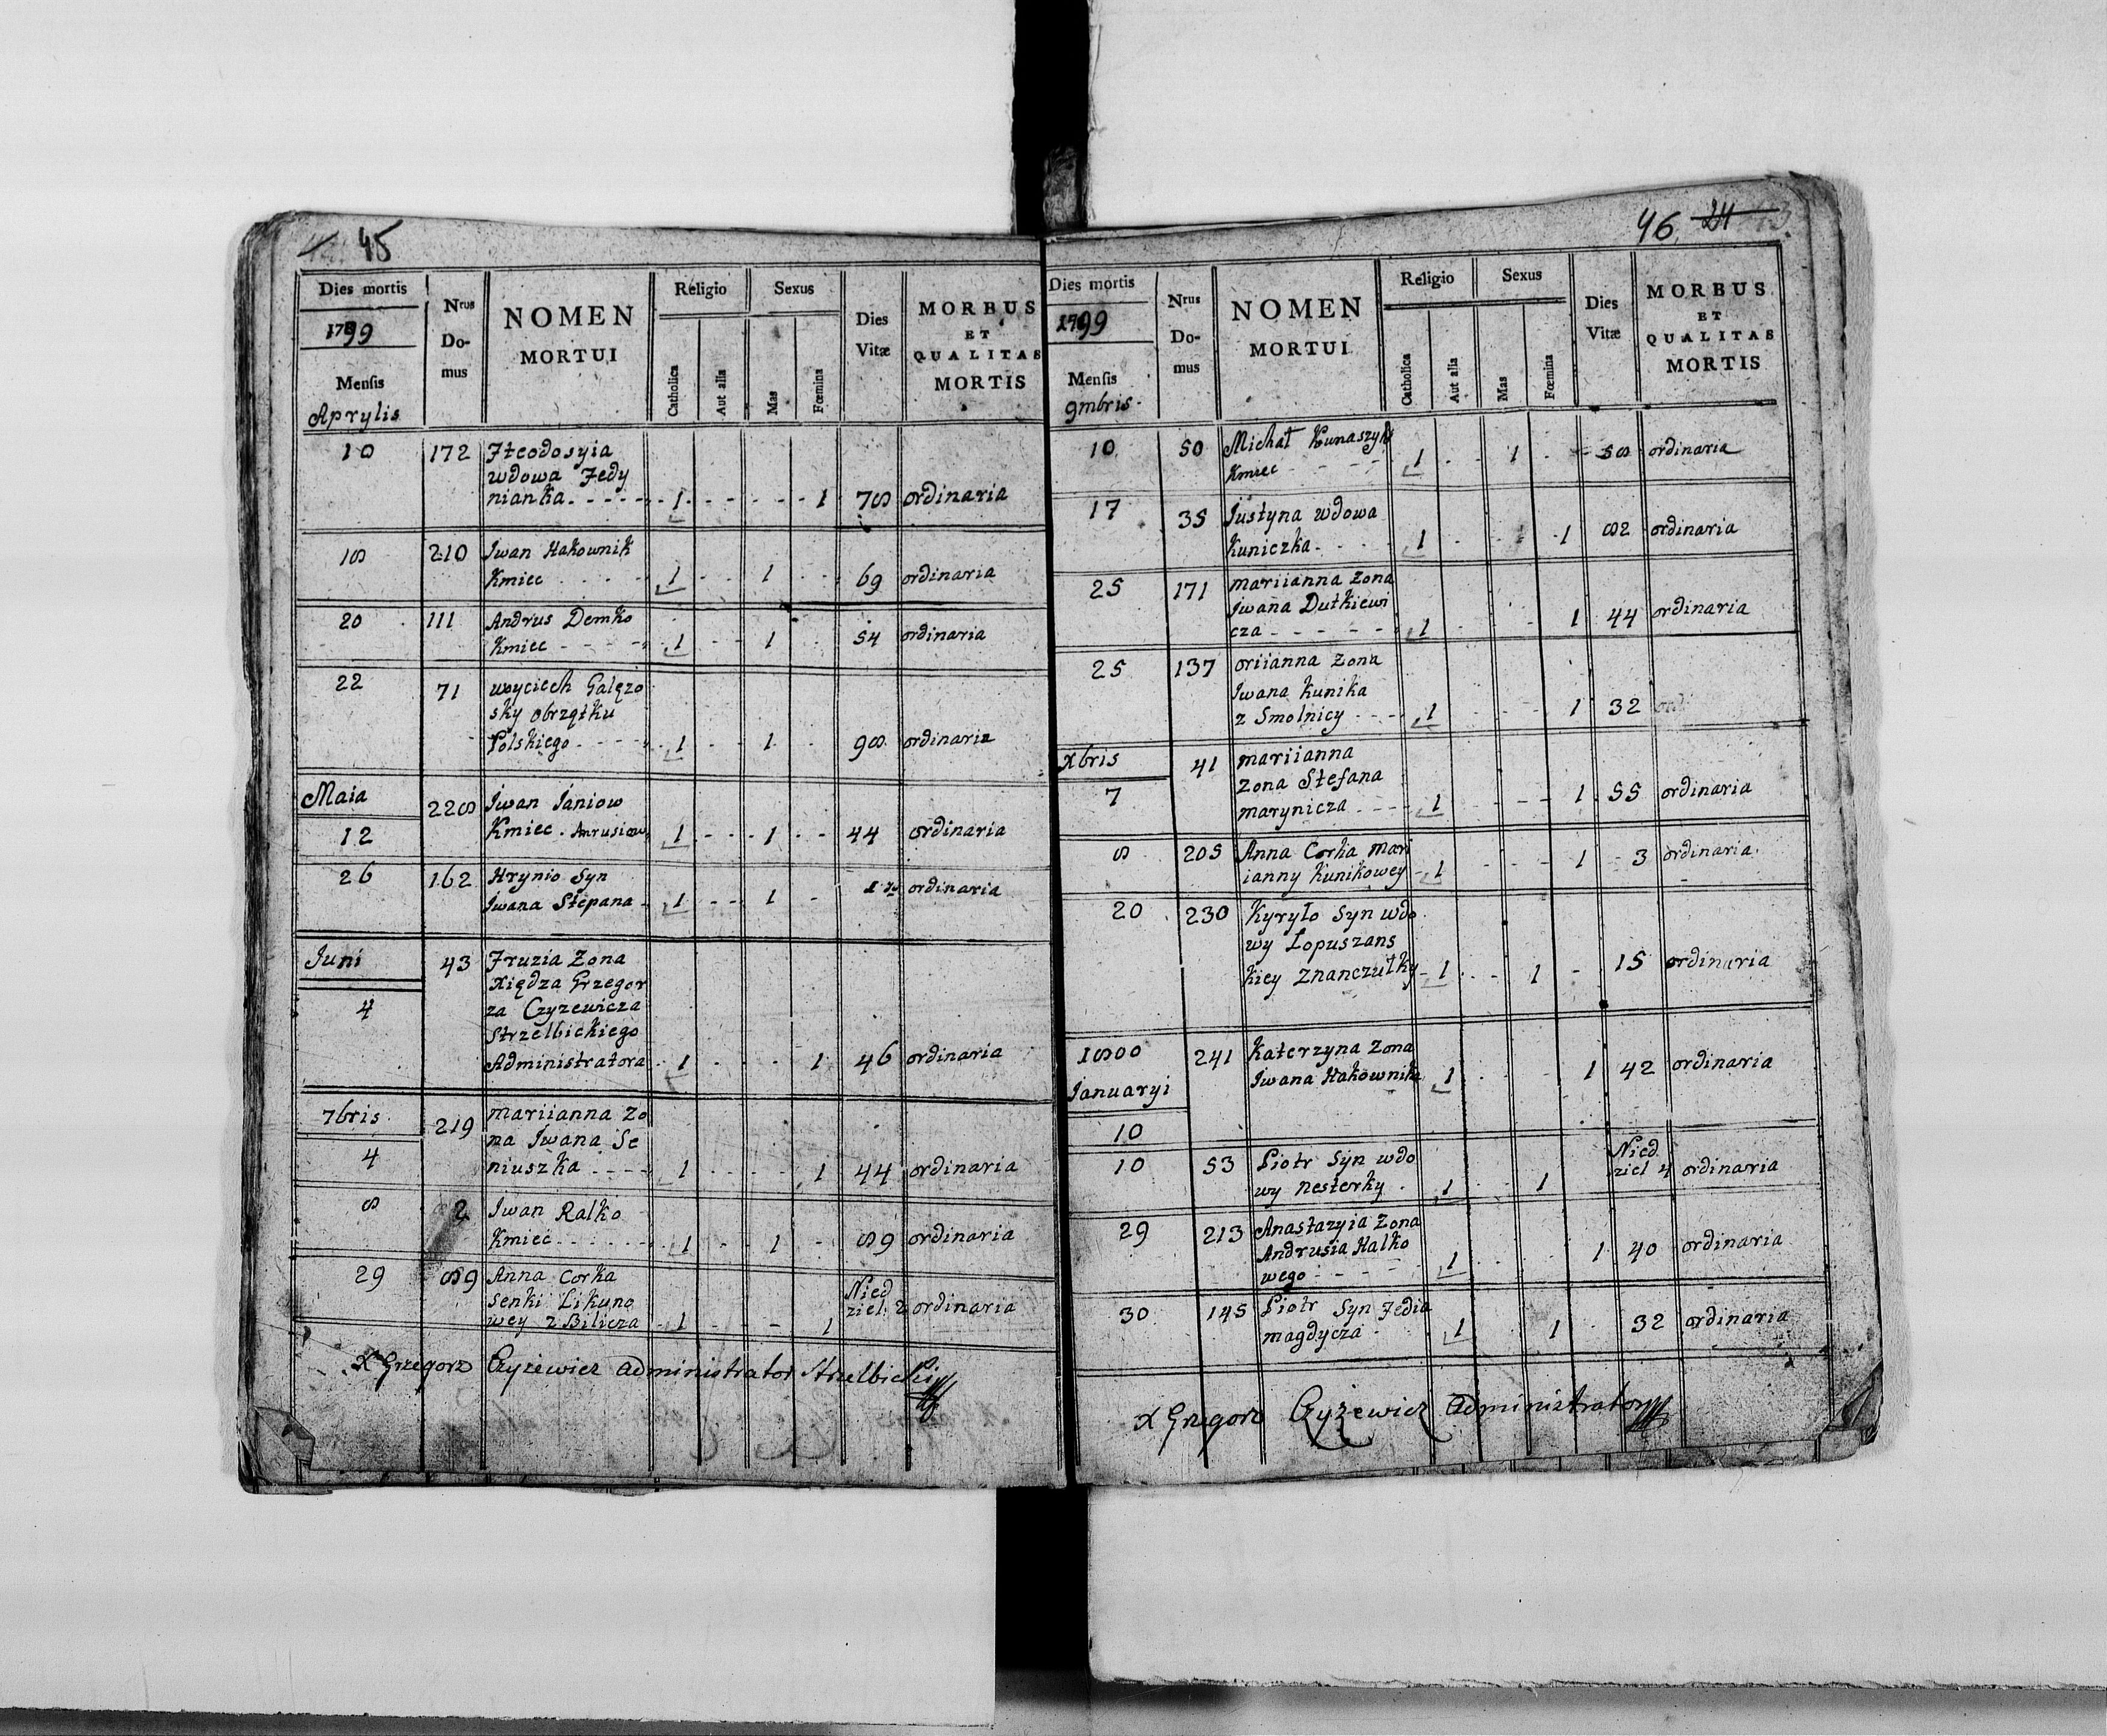 45
Dies mortis
1799
Mensis
Aprylis
Nrus
Do-
mus
NOMEN
MORTUI
Religio
Catholica
Aut alia
Sexus
Mas
Fœmina
Dies
Vitæ
MORBUS
ET
QUALITAS
MORTIS
10 172 Fteodosyia
wdowa Fedy
nianka 1 1 78 ordinaria
18 210 Iwan Hakownik
Kmiec 1 1 69 ordinaria
20 111 Andrus Demko
Kmiec 1 1 54 ordinaria
22 71 woyciech Galęzo
sky obrządku
Polskiego 1 1 98 ordinaria
Maia
228 Iwan Janiow
12 Kmiec Anrusiow 1 1 44 ordinaria
26 162 Hrynio Syn
Iwana Stepana 1 1 ordinaria
Iuni
4
43 Fruzia Zona
Xiędza Grzegor
za Czyzewicza
Strzelbickiego
Administratora 1 1 46 ordinaria
7bris
4
219 mariianna Zo
na Iwana Se
niuszka 1 1 44 ordinaria
8 2 Iwan Ralko
Kmiec 1 1 89 ordinaria
29 89 Anna Corka
senki Likuno
wey z Bilicza 1 1
Nied
ziel 2 ordinaria
X Grzegorz Czyżewicz administrator Strzelbicki
46 24
Dies mortis
1799
Mensis
9mbris
Nrus
Do-
mus
NOMEN
MORTUI
Religio
Catholica
Aut alia
Sexus
Mas
Fœmina
Dies
Vitæ
MORBUS
ET
QUALITAS
MORTIS
10 50 Michał Kunaszyk
Kmiec 1 1 58 ordinaria
17 35 Justyna wdowa
Kuniczka 1 1 82 ordinaria
25 171 mariianna zona
Iwana Dutkiewi
cza 1 1 44 ordinaria
25 137 oriianna zona
Iwana Kunika
z Smolnicy 1 1 32 ord
Xbris
7
41 mariianna
zona Stefana
marynicza 1 1 55 ordinaria
8 205 Anna Corka mari
ianny Kunikowey 1 1 3 ordinaria
20 230 Kyryło Syn wdo
wy Łopuszans
kiey Znanczułky 1 1 15 ordinaria
1800
Januaryi
10
241 Katerzyna Zona
Iwana Hakownika 1 1 42 ordinaria
10 53 Piotr Syn wdo
wy nesterky 1 1
Nied
ziel 4 ordinaria
29 213 Anastazyia Zona
Andrusia Halko
wego 1 1 40 ordinaria
30 145 Piotr Syn Fedia
magdycza 1 1 32 ordinaria
X Grzegorz Czyżewicz Administrator